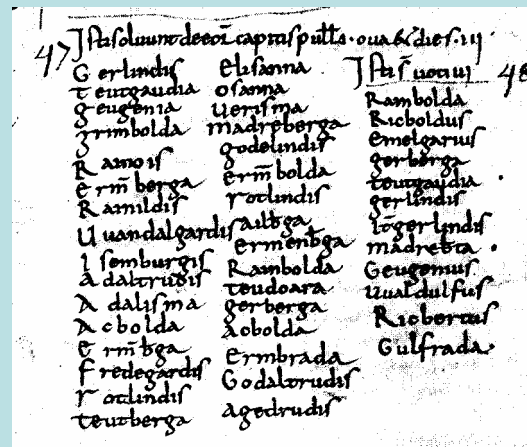 47 Isti solvunt de eor̄ capitis pull̄ . ova & dies . iii
Gerlindis
Teutgaudia
Geugenia
Grimbolda
Ramois
Erm̄berga
Ramildis
Uuandalgardis
Isemburgis
Adaltrudis
Adalisma
Acbolda
Erm̄bga
Fredegardis
Rotlindis
Teutberga
Elisanna
Osanna
Uerisma
Madreberga
Godelindis
Erm̄bolda
Rotlindis
Ailbga
Ermenbga
Rambolda
Teudoara
Gerberga
Acbolda
Ermbrada
Godaltrudis
Agedrudis
Isti s̄ uotiui 48
Rambolda
Ricboldus
Emelgarius
Gerberga
Teutgaudia .
Gerlindis
It̄ gerlindis
Madrebta .
Geugenius
Ualdulfus
Ricbertus
Gulfrada.